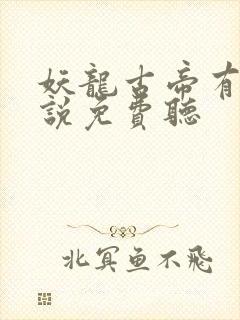 妖龍古帝有
說免費聽
北冥鱼不飛